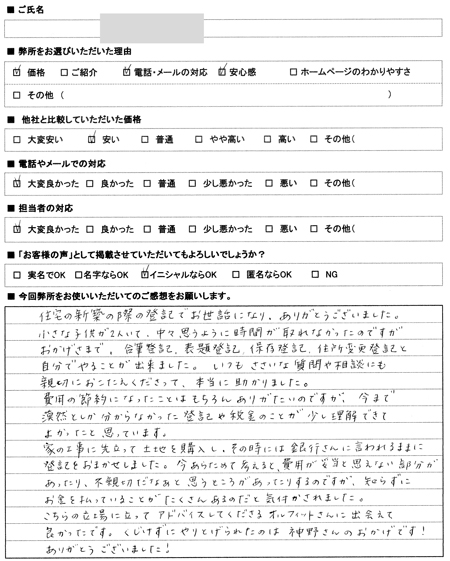 ■ ご氏名
■ 弊所をお選びいただいた理由
☑ 価格 □ ご紹介 ☑ 電話・メールの対応 ☑ 安心感 □ ホームページのわかりやすさ
□ その他 ( )
■ 他社と比較していただいた価格
□ 大変安い ☑ 安い □ 普通 □ やや高い □ 高い □ その他(
■ 電話やメールでの対応
☑ 大変良かった □ 良かった □ 普通 □ 少し悪かった □ 悪い □ その他(
■ 担当者の対応
☑ 大変良かった □ 良かった □ 普通 □ 少し悪かった □ 悪い □ その他(
■ 「お客様の声」として掲載させていただいてもよろしいでしょうか？
□ 実名でOK □ 名字ならOK ☑ イニシャルならOK □ 匿名ならOK □ NG
■ 今回弊所をお使いいただいてのご感想をお願いします。
住宅の新築の際の登記でお世話になり、ありがとうございました。
小さな子供が2人いて、中々思うように時間が取れなかったのですが
おかげさまで、合筆登記、表題登記、保存登記、住所変更登記と
自分でやることが出来ました。いつもささいな質問や相談にも
親切におこたえくださって、本当に助かりました。
費用の節約になったことはもちろんありがたいのですが、今まで
漠然としか分からなかった登記や税金のことが少し理解できて
よかったと思っています。
家の工事に先立って土地を購入し、その時には銀行さんに言われるままに
登記をおまかせしました。今あらためて考えると、費用が妥当と思えない部分が
あったり、不親切だなぁと思うところがあったりするのですが、知らずに
お金を払っていることがたくさんあるのだと気付かされました。
こちらの立場に立ってアドバイスしてくださるオルフィットさんに出会えて
良かったです。くじけずにやりとげられたのは神野さんのおかげです！
ありがとうございました！